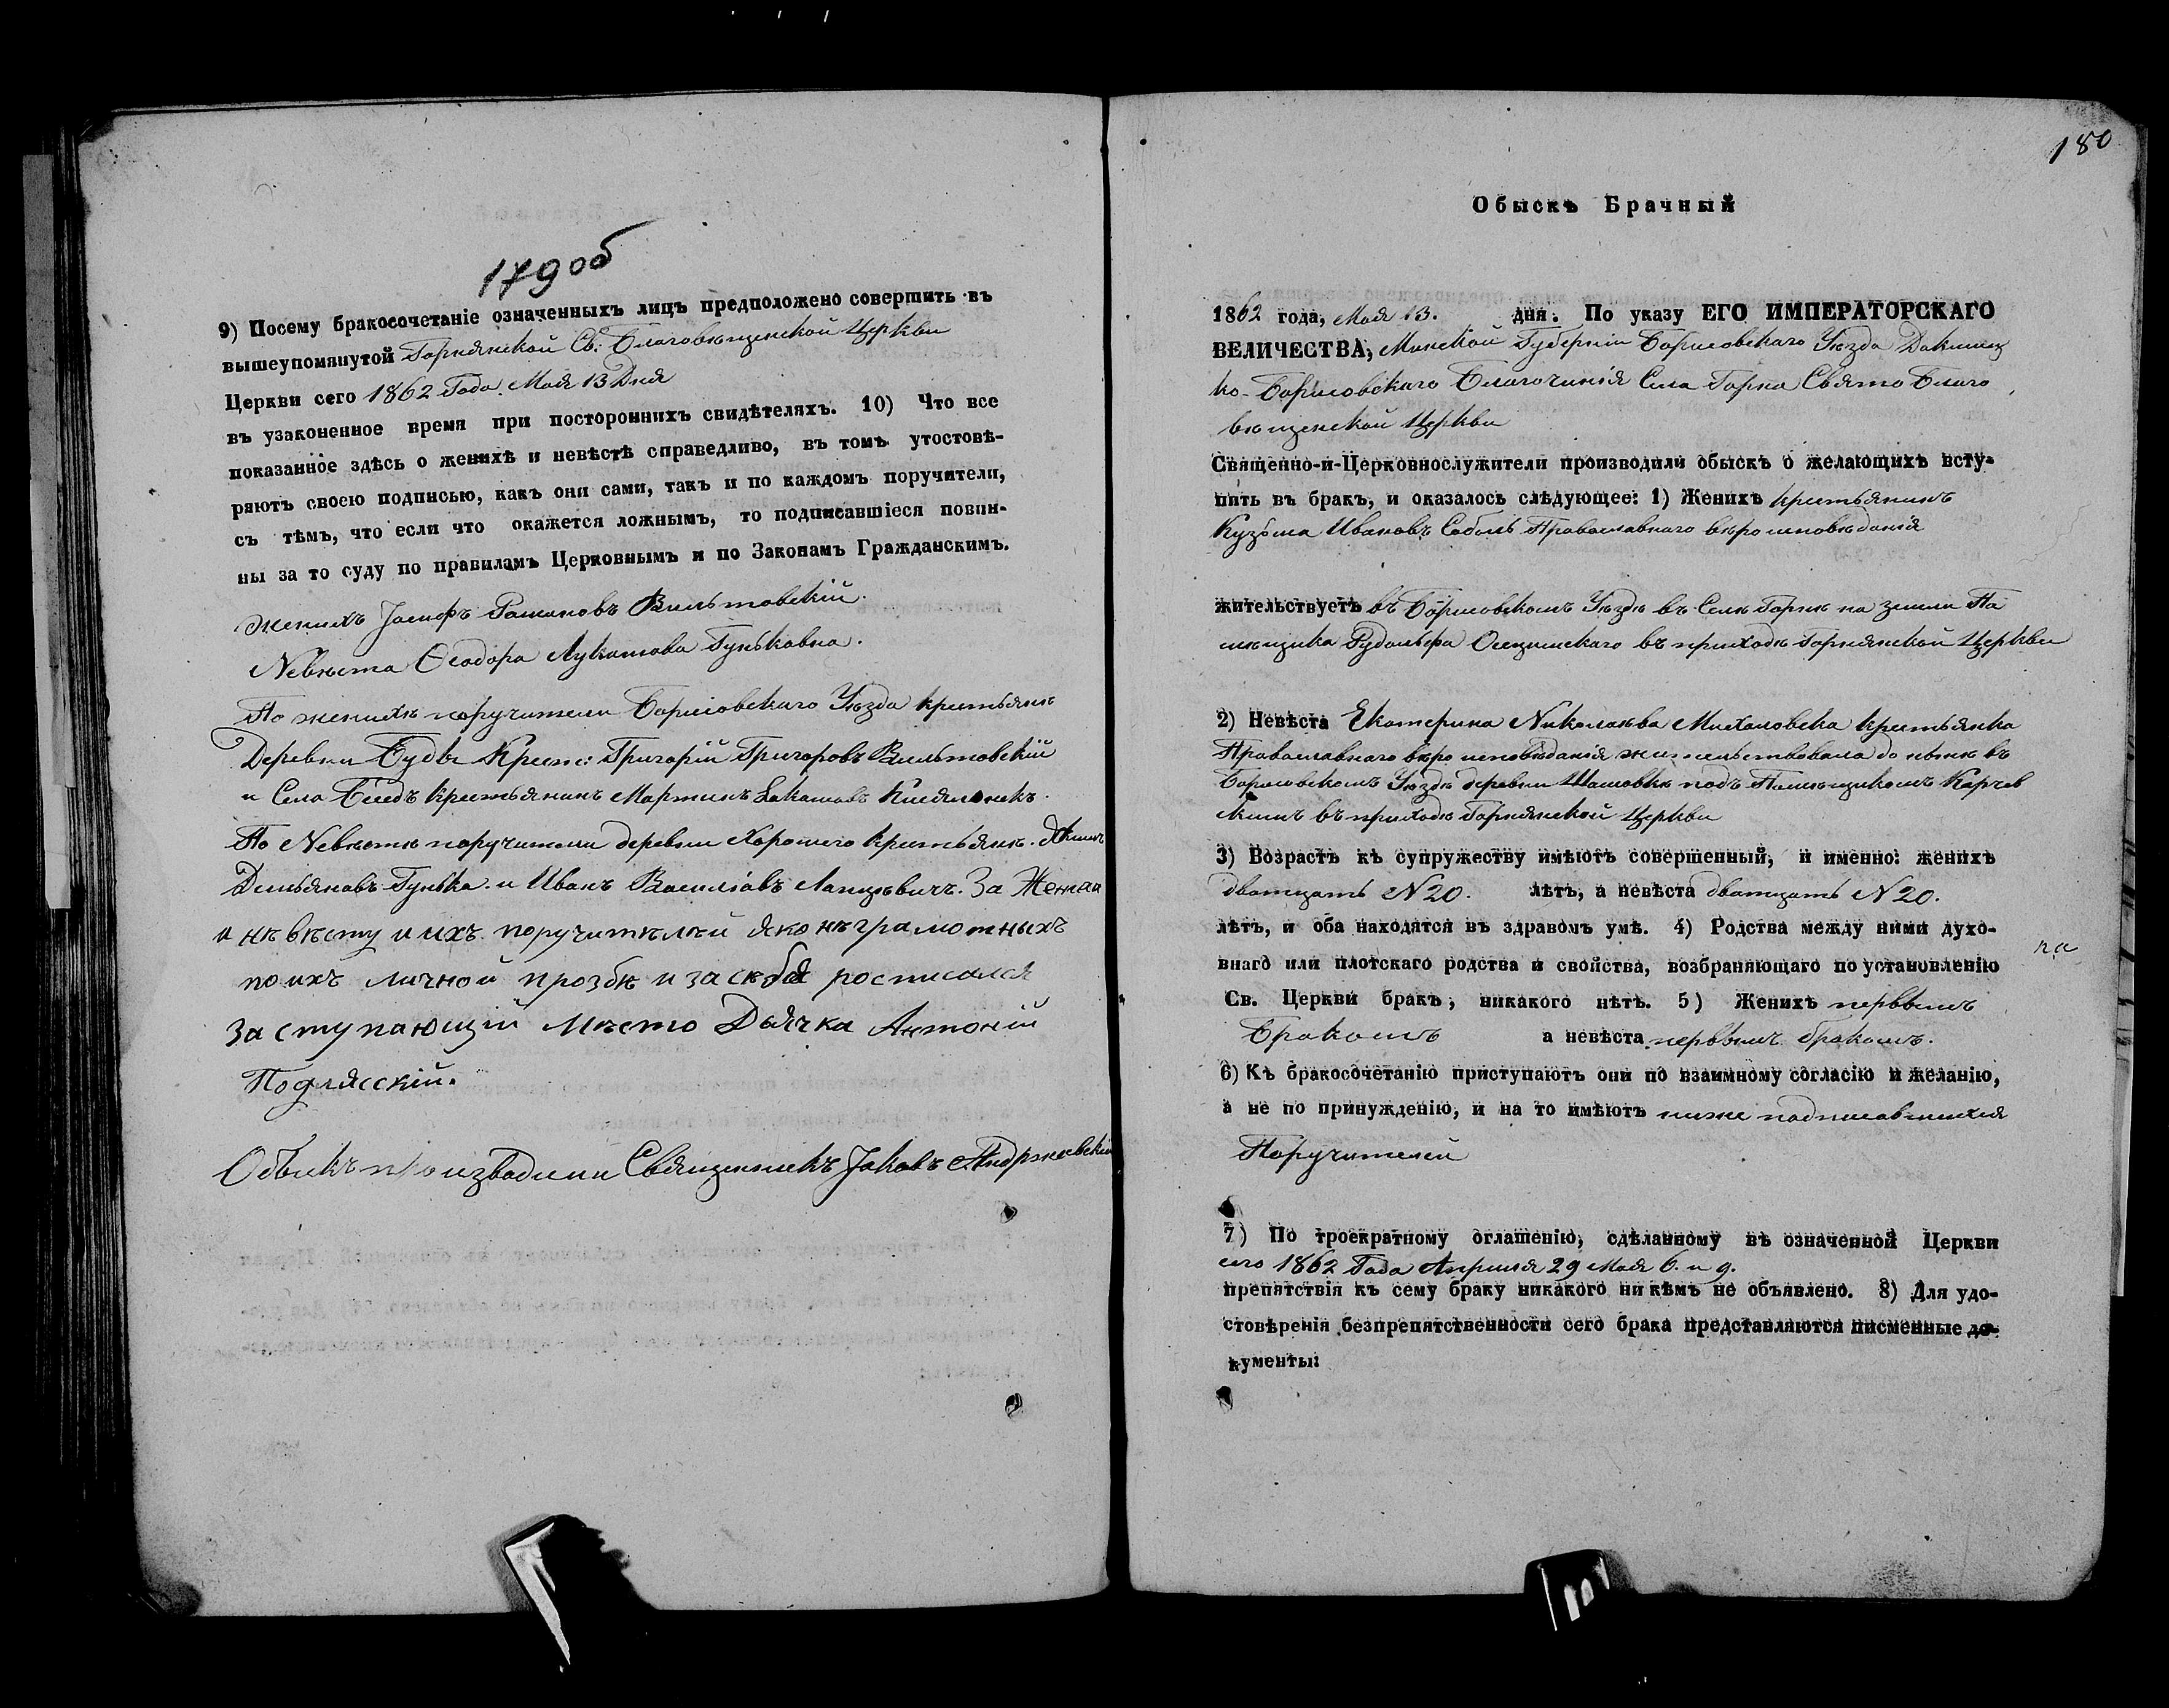 179 об
9) Посему бракосочетаніе означенныхъ лицъ предположено совершить въ
вышеупомянутой Горнянской Св: Благовѣщенской Церкви
Церкви сего 1862 Года. Мая 13 Дня
въ узаконенное время при постороннихъ свидѣтеляхъ. 10) Что все
показанное здѣсь о женихѣ и невѣстѣ справедливо, въ томъ утостовѣ-
ряютъ своею подписью, какъ они сами, такъ и по каждомъ поручители,
съ тѣмъ, что если что окажется ложнымъ, то подписавшіеся повин-
ны за то суду по правиламъ Церковнымъ и по Законамъ Гражданскимъ.
женихъ Іосифъ Романовъ Вильтовскій.
Nевѣста Ѳеодора Лукашова Гунькавна.
По женихѣ поручители Борисовскаго Уѣзда крестьяне
Деревни Буды Крест: Григорій Григоровъ Вильтовскій
и Села крестьянинъ Мартинъ
По Nевѣстѣ поручители деревни Хорошего крестьяне.
Демьяновъ Гунька. и Иванъ Василіовъ Лапцевичъ. За Жениха
и нѣвѣсту и ихъ поручитѣлѣй яко нѣграмотныхъ
по ихъ личной прозбѣ и за сѣбя росписался
Заступающій Мѣсто Дьячка Антоній
Подлясскій.
Обыскъ производили Священникъ Іаковъ Андржеевскій
180
Обыскъ Брачный
1862 года, Мая 13. дня. По указу ЕГО ИМПЕРАТОРСКАГО
ВЕЛИЧЕСТВА, Минской Губерніи Борисовскаго Уѣзда Докшиц
ко-Борисовскаго Благочинія Села Горна Свято Благо
вѣщенской Церкви
Священно-и-Церковнослужители производили обыскъ о желающихъ всту-
пить въ бракъ, и оказалось слѣдующее: 1) Женихъ крестьянинъ
Кузьма Ивановъ Соболь Православнаго вѣроисповѣданія
жительствуетъ въ Борисовскомъ Уѣздѣ въ Селѣ Горнѣ на земли По
мѣщика Рудольфа въ приходѣ Горнянской Церкви
2) Невѣста Екатерина Nиколаѣва Михаловска крестьянка
Православнаго вѣроисповѣданія жительствовала до нынѣ въ
Борисовскомъ Уѣздѣ деревни Шашовкѣ подъ Помѣщикомъ Карчев
скимъ въ приходѣ Горнянской Церкви
3) Возрастъ къ супружеству имѣютъ совершенный, и именно: женихъ
двотцать N 20. лѣтъ, а невѣста двотцать N 20.
лѣтъ, и оба находятся въ здравомъ умѣ. 4) Родства между ними духо-
внаго или плотскаго родства и свойства, возбраняющаго по установленію
на
Св. Церкви бракъ, никакого нѣтъ. 5) Женихъ первымъ
Бракомъ а невѣста первымъ бракомъ.
6) Къ бракосочетанію приступаютъ они по взаимному согласію и желанію,
а не по принужденію, и на то имѣютъ ниже подписавшихся
Поручителей
7) По троекратному оглашенію, сдѣланному въ означенной Церкви
сего 1862 Года Априля 29 Мая 6. и 9.
препятствія къ сему браку никакого ни кѣмъ не объявлено. 8) Для удо-
стовѣренія безпрепятственности сего брака представляются писменные до-
кументы: